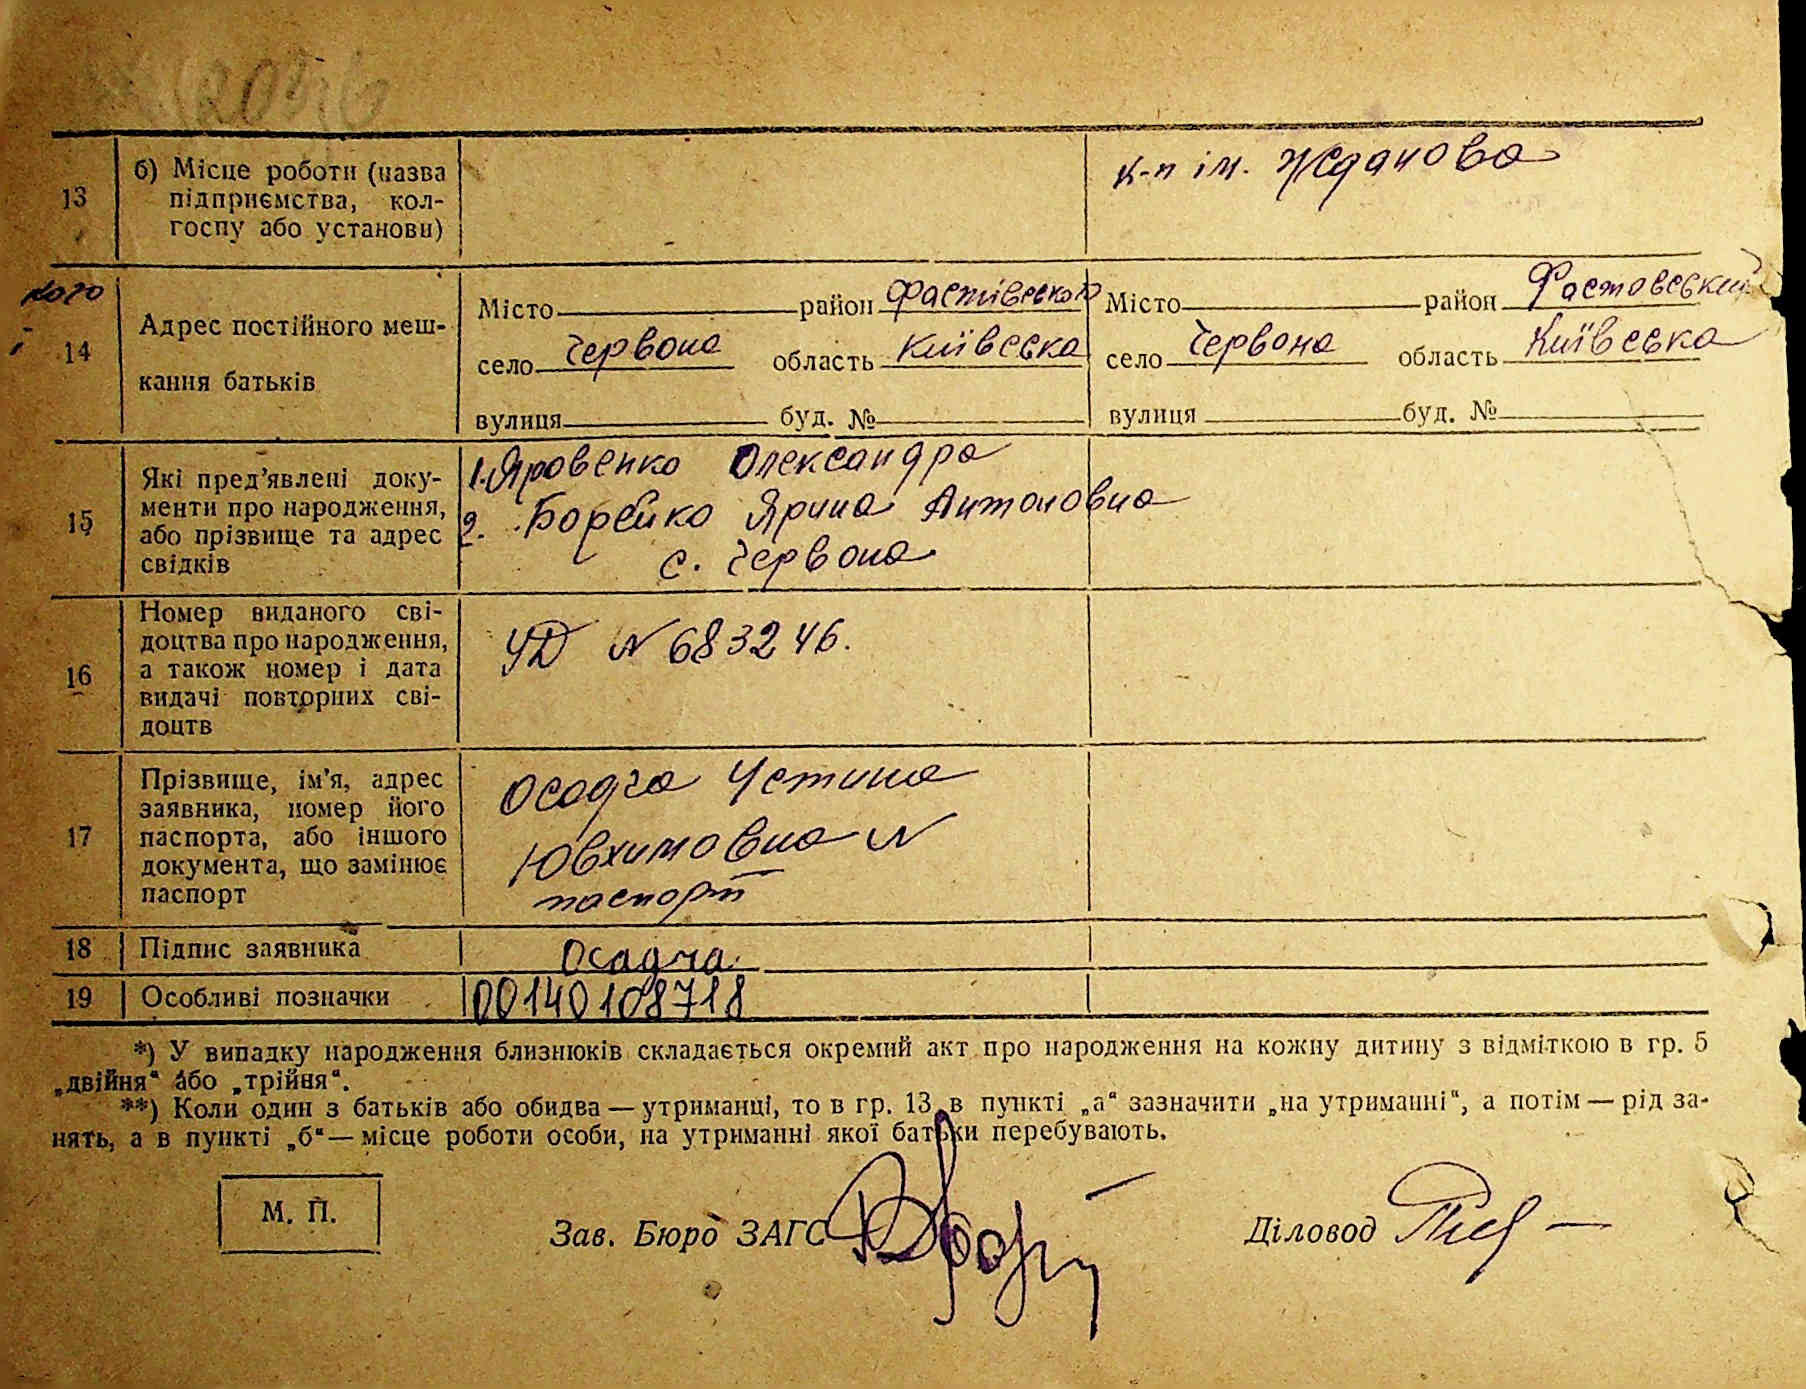 13 б) Місце роботи (назва підприємства, колгоспу або установи)
к-п ім. Жданова
кого
14 Адрес постійного мешкання батьків
Місто район Фастівський
село Червона область Київська
вулиця буд. №
Місто район Фастовський
село Червона область Київська
вулиця буд. №
15 Які пред’явлені документи про народження, або прізвище та адрес свідків
1. Яровенко Олександра
2. Борейко Ярина Антоновна
с. Червона
16 Номер виданого свідоцтва про народження, а також номер і дата видачі повторних свідоцтв
УД № 683246.
17 Прізвище, ім’я, адрес заявника, номер його паспорта, або іншого документа, що замінює паспорт
Осадча Устина
Ювхимовна №
паспорт
18 Підпис заявника Осадча
19 Особливі позначки 00140108718
*) У випадку народження близнюків складається окремий акт про народження на кожну дитину з відміткою в гр. 5
„двійня“ або „трійня“.
**) Коли один з батьків або обидва — утриманці, то в гр. 13 в пункті „а“ зазначити „на утриманні“, а потім — рід за-
нять, а в пункті „б“ — місце роботи особи, на утриманні якої батьки перебувають.
М. П.
Зав. Бюро ЗАГС
Діловод